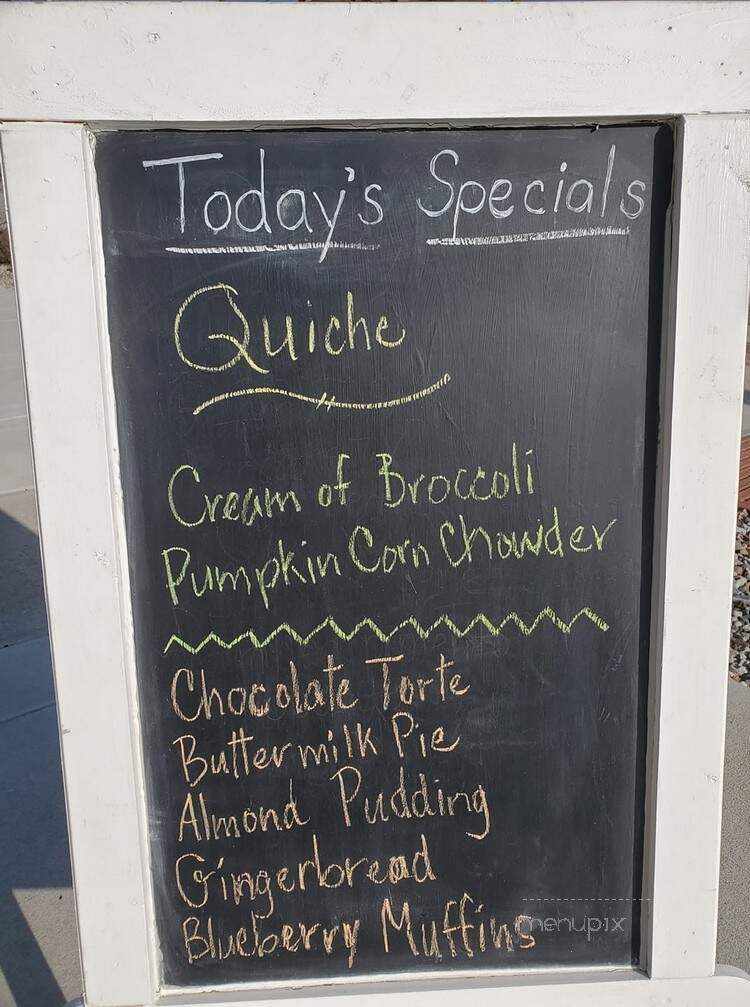 Today's Specials
Quiche
Cream of Broccoli
Pumpkin Corn Chowder
Chocolate Torte
Buttermilk Pie
Almond Pudding
Gingerbread
Blueberry Muffins
menupix